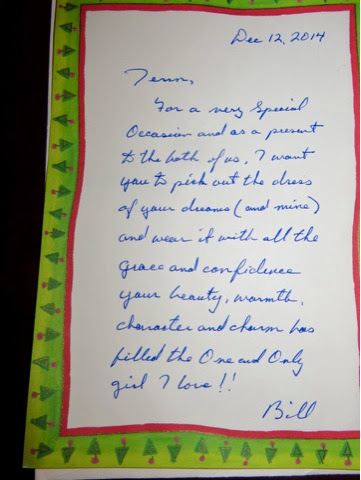 Dec 12, 2014
For a very Special
Occasion and as a present
to the both of us, I want
you to pick out the dress
of your dreams (and mine)
and wear it with all the
grace and confidence
your beauty, warmth,
character and charm has
filled the One and Only
girl I love!!
Bill